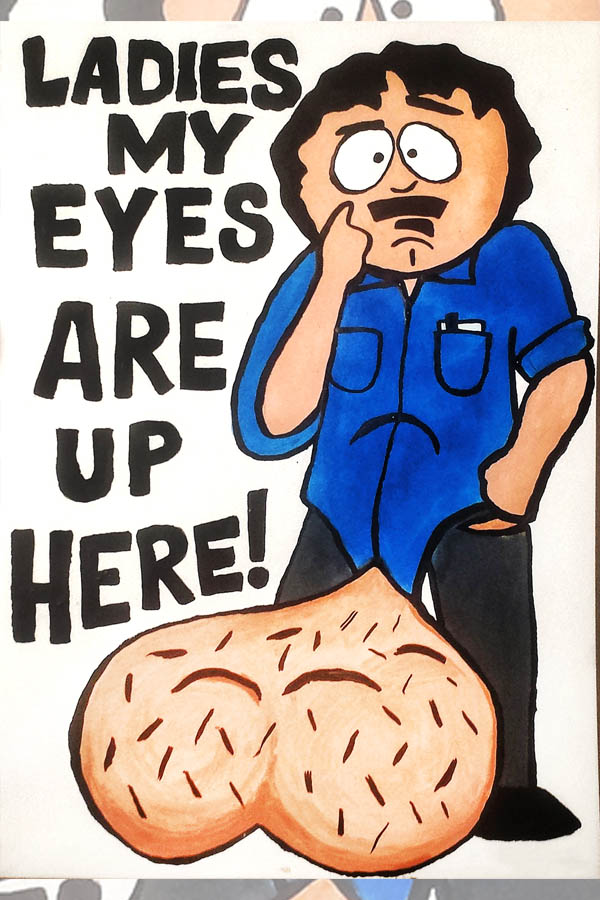 LADIES
MY
EYES
ARE
UP
HERE!